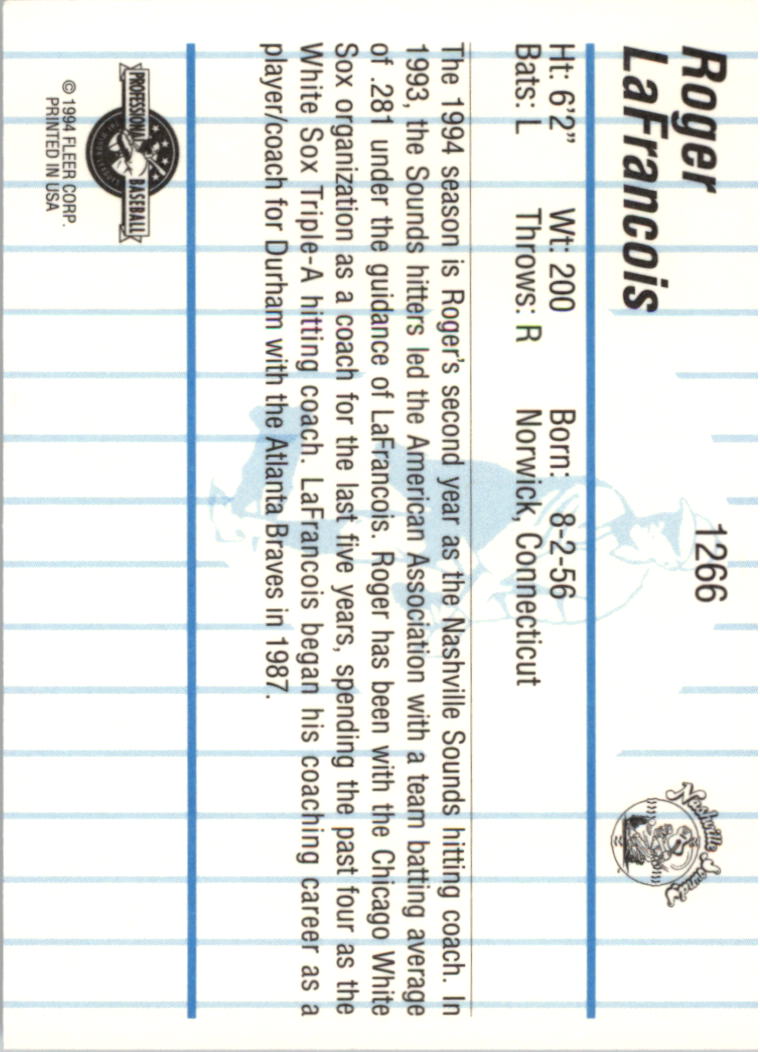 Roger
LaFrancois
1266
Nashville Sounds
Ht: 6'2" Wt: 200 Born: 8-2-56
Bats: L Throws: R Norwick, Connecticut
The 1994 season is Roger's second year as the Nashville Sounds hitting coach. In
1993, the Sounds hitters led the American Association with a team batting average
of .281 under the guidance of LaFrancois. Roger has been with the Chicago White
Sox organization as a coach for the last five years, spending the past four as the
White Sox Triple-A hitting coach. LaFrancois began his coaching career as a
player/coach for Durham with the Atlanta Braves in 1987.
PROFESSIONAL BASEBALL
© 1994 FLEER CORP.
PRINTED IN USA